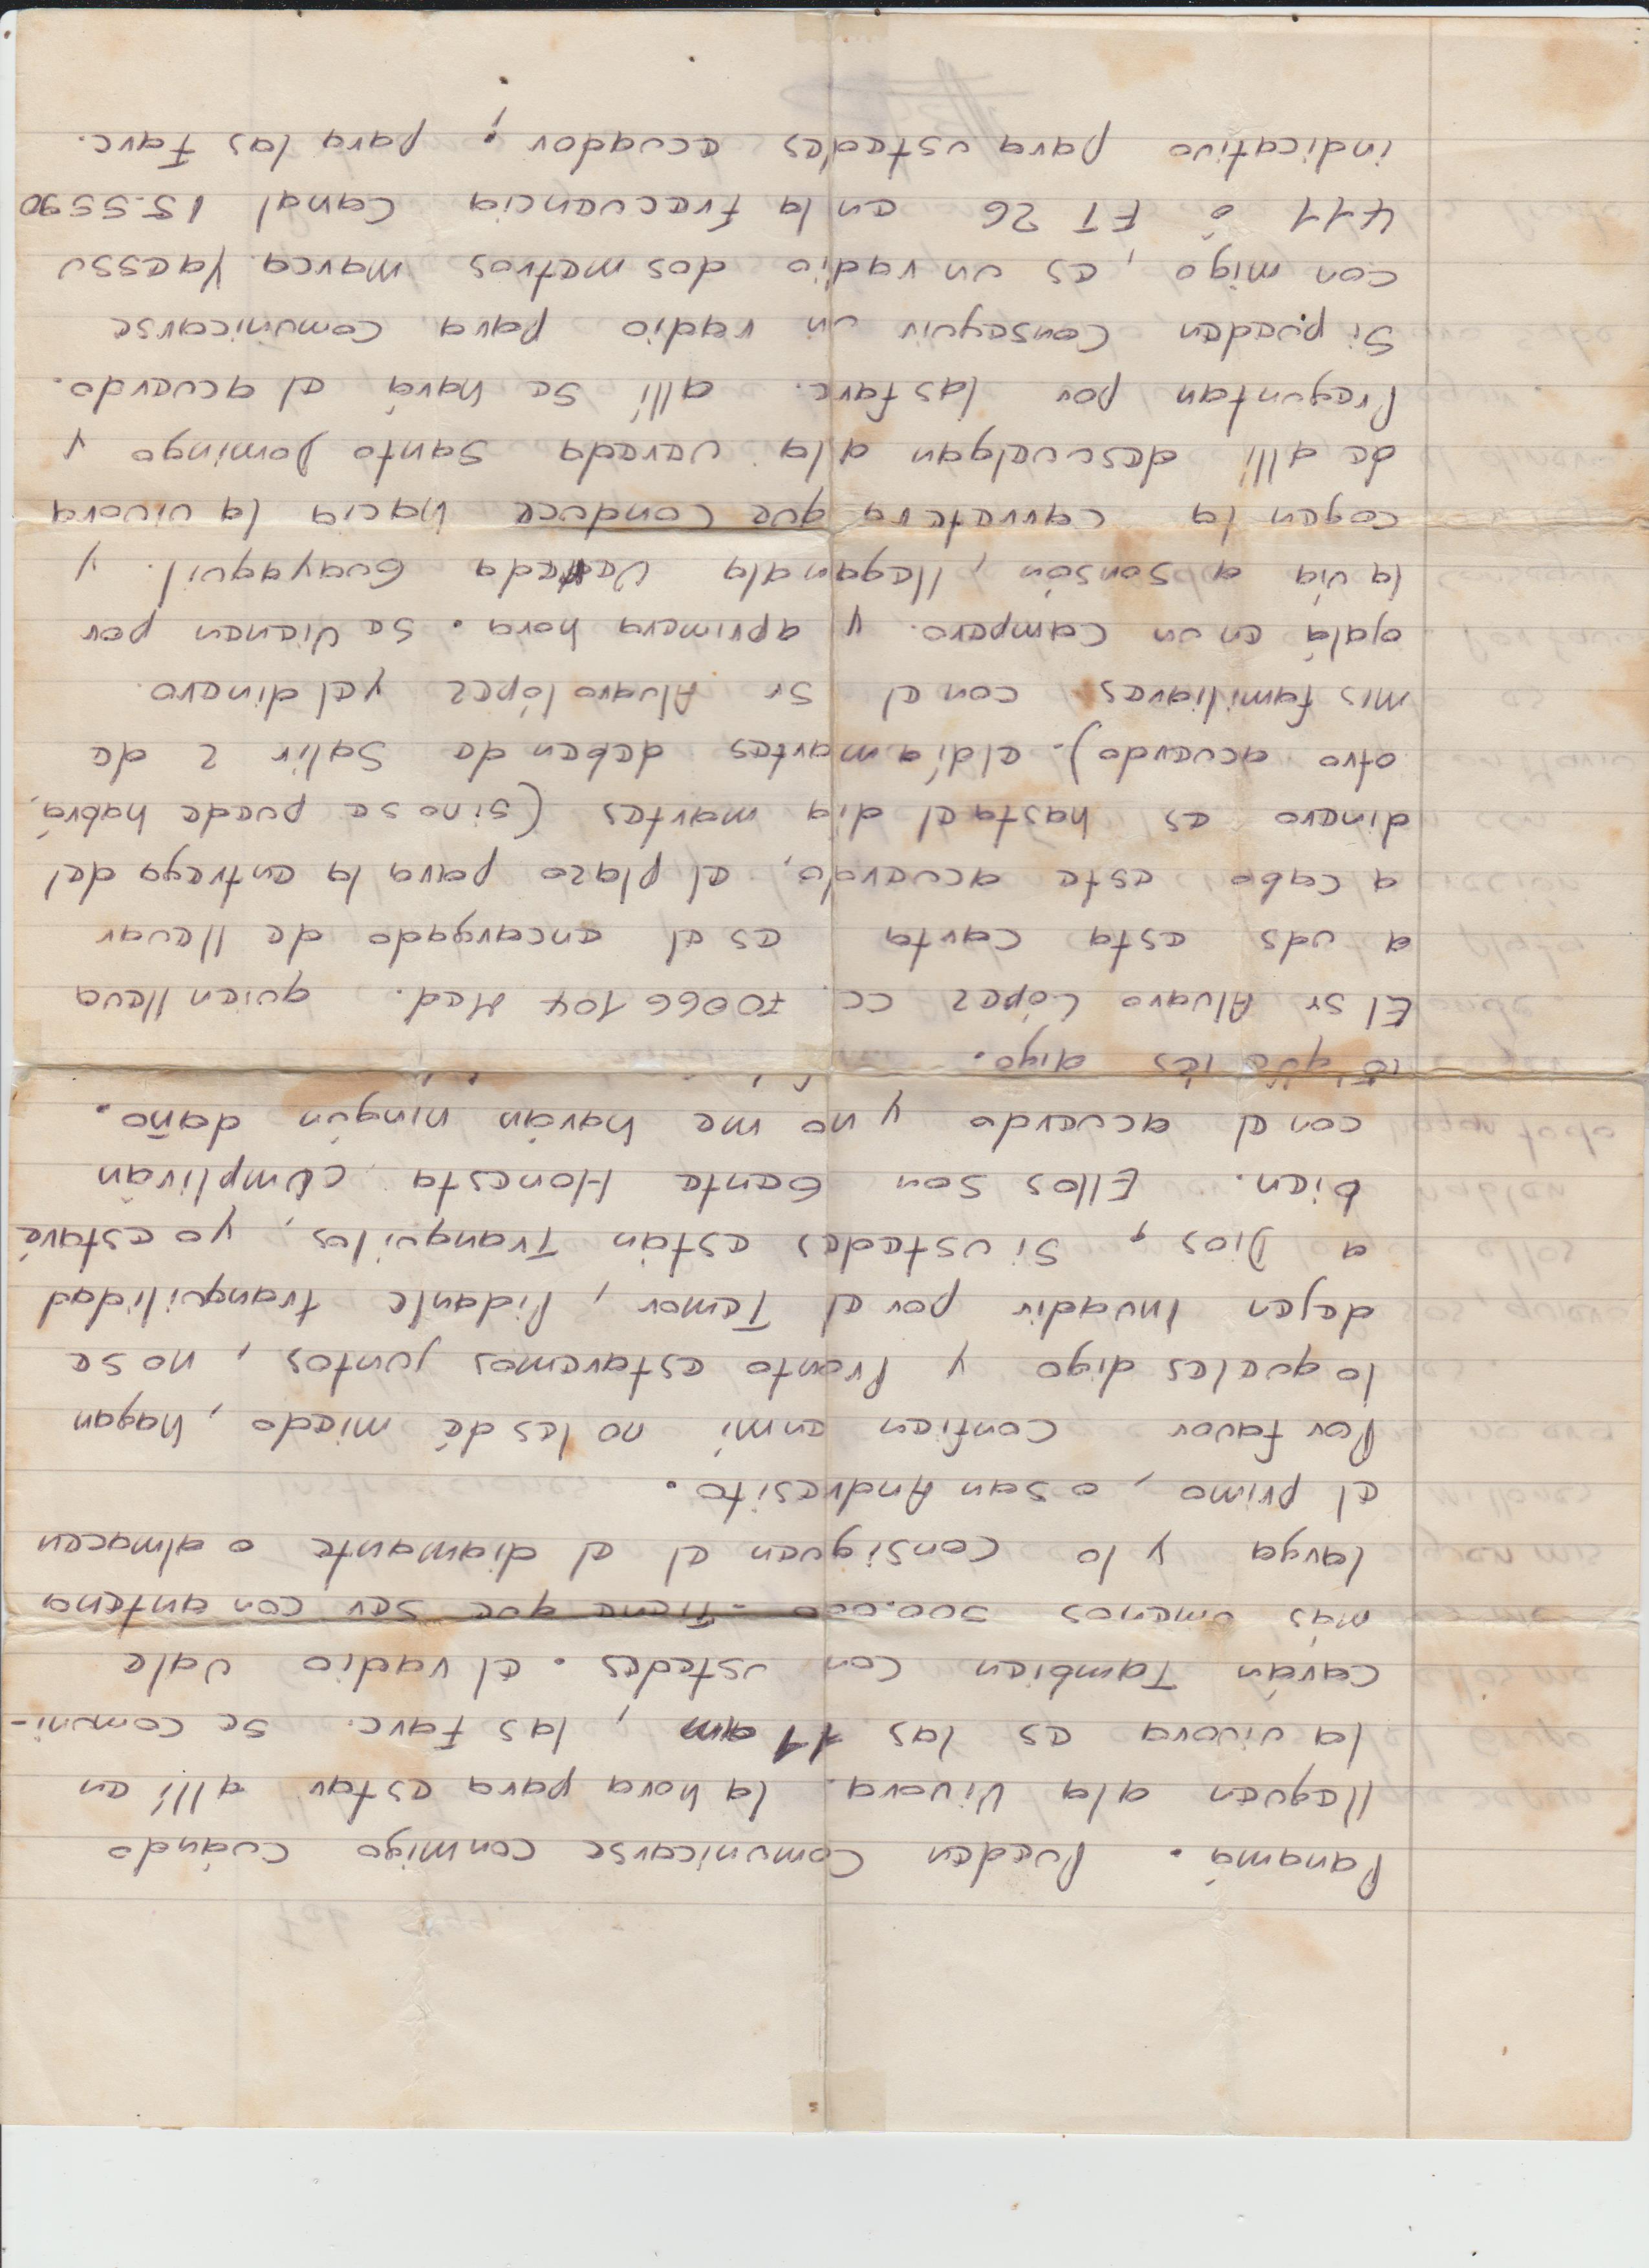 Panamá. Pueden Comunicarse conmigo cuándo
lleguen ala Vivora. la hora para estar allí en
la vivora es las 11 am, las Farc. se comuni-
carán Tambien con ustedes. el radio vale
más omenos 500.000 - Tiene que ser con antena
larga y lo consiguen el el diamante o almacen
el primo, o san Andresito.
Por favor confien enmí no les dé miedo, hagan
lo queles digo y Pronto estaremos juntos, no se
dejen Invadir por el Temor, Pidanle tranquilidad
a Dios, si ustedes están Tranquilos, yo estaré
bien. Ellos son Gente Honesta cumplirán
con el acuerdo y no me harán ningún daño.
lo que les digo.
El sr Alvaro López cc. 70066104 Med. quien lleva
a uds esta carta es el encargado de llevar
a cabo este acuerdo, el plazo para la entrega del
dinero es hasta el dia martes (sino se puede habrá
otro acuerdo). el día martes deben de salir 2 de
mis familiares con el sr Alvaro lópez y el dinero.
ojalá en un campero. y aprimera hora. se vienen por
la vía a sonsón, llegan ala vereda Guayaquil. y
cogen la carretera que conduce hacia la vivora
de allí descuelgan ala vereda santo Domingo y
Preguntan por las farc. allí se hará el acuerdo.
Si pueden conseguir un radio para comunicarse
con migo, es un radio dos metros marca Yaessu
411 ó FT 26 en la frecuencia Canal 15.5590
indicativo para ustedes ecuador, para las Farc.